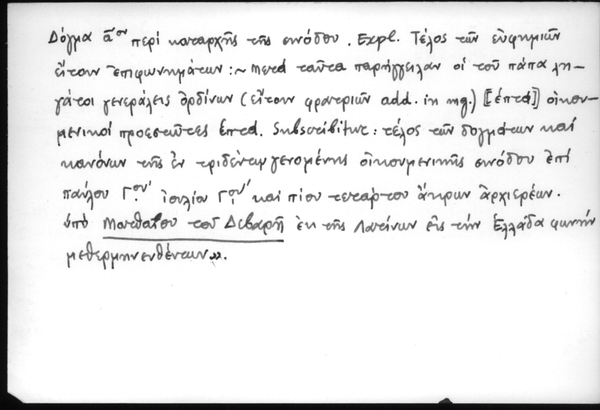 Δόγμα α^ον περί καταρχῆς τῆς συνόδου. Expl. Τέλος τῶν εὐφημιῶν
εἴτουν ἐπιφωνημάτων :~ Μετά ταῦτα παρήγγειλαν οἱ τοῦ πάπα λη-
γάτοι γενεράλεις ὀρδίνων (εἴτουν φρατριῶν add. in mg.) [[ἑπτά]] οἰκου-
μενικοί προεστῶτες ἑπτά. Subscribitur: τέλος τῶν δογμάτων καί
κανόνων τῆς ἐν τριδέντῳ γενομένης οἰκουμενικῆς συνόδου ἐπί
παύλου Γ.^ου ἰουλίου Γ.^ου καί πίου τετάρτου ἄκρων ἀρχιερέων.
ὑπό Ματθαίου τοῦ Δεβαρῆ ἐκ τῆς Λατίνων εἰς τήν Ἑλλάδα φωνήν
μεθερμηνευθέντων».